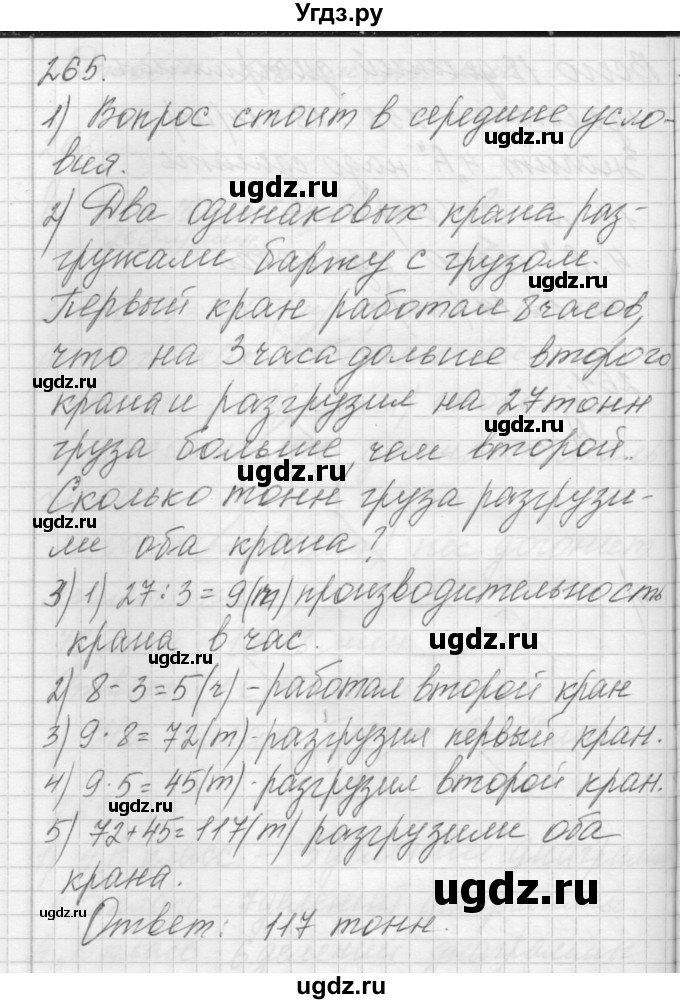 Угдз.ру
265.
1) Вопрос стоит в середине усло-
вия.
ugdz.ru
2) Два одинаковых крана раз-
гружали баржу с грузом.
ugdz.ru
Первый кран работал 8 часов,
что на 3 часа дольше второго
ugdz.ru
крана и разгрузил на 27 тонн
груза больше, чем второй.
ugdz.ru
Сколько тонн груза разгрузи-
ugdz.ru
ли оба крана?
3) 1) 27:3=9(т) производительность
крана в час.
ugdz.ru
2) 8-3=5(ч) - работал второй кран
3) 9·8=72(т) - разгрузил первый кран.
4) 9·5=45(т) - разгрузил второй кран.
ugdz.ru
5) 72+45=117(т) разгрузили оба
крана.
ugdz.ru
ugdz.ru
Ответ: 117 тонн.
ugdz.ru